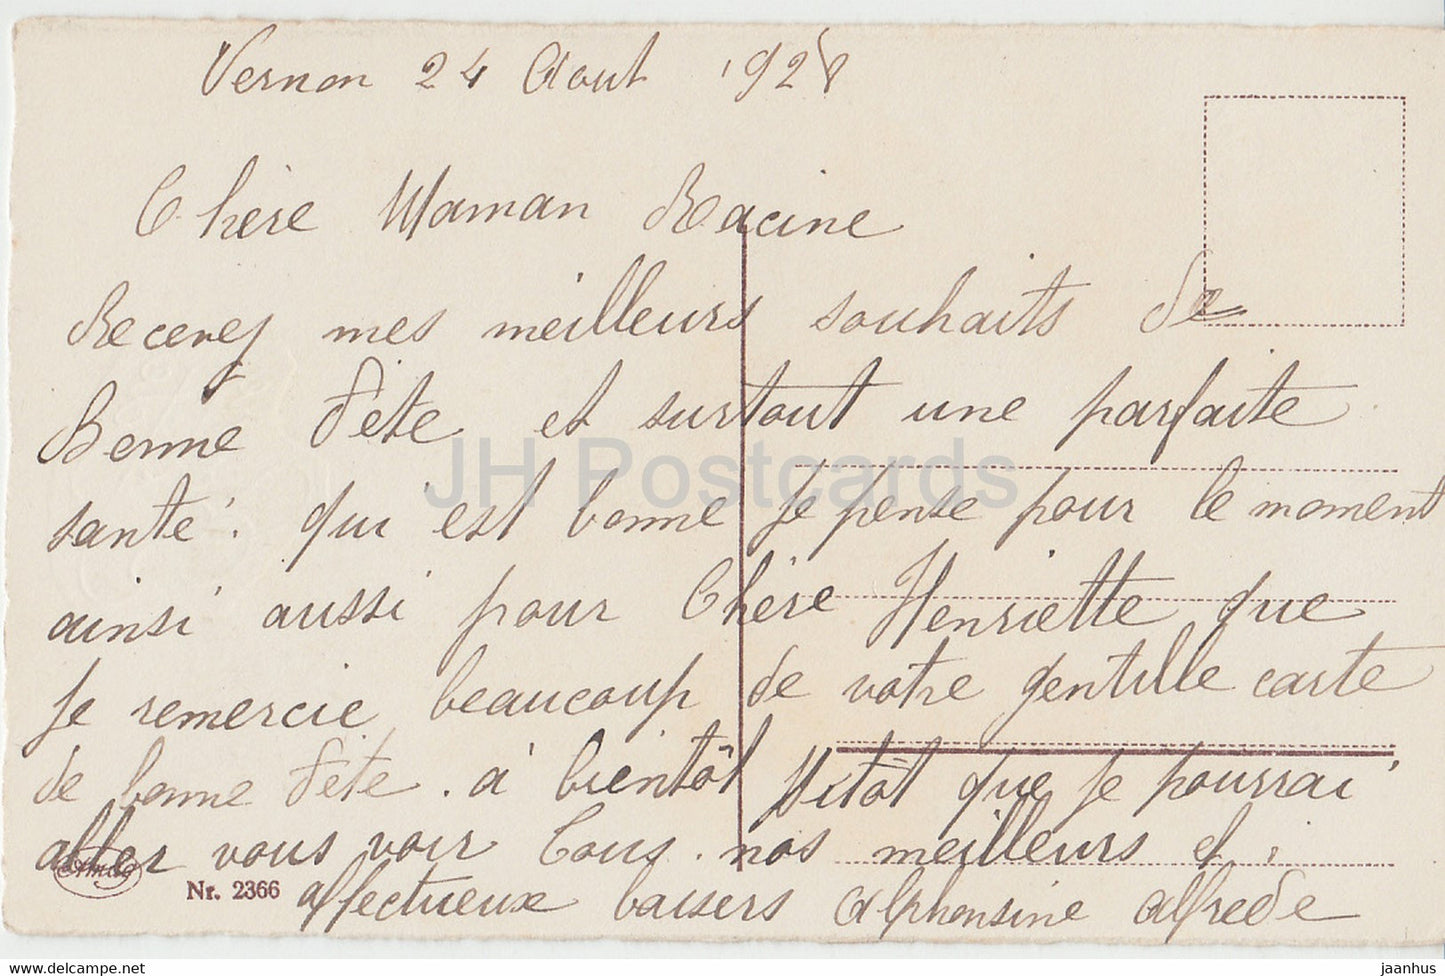 Vernon 24 Aout 1928
Chère Maman Racine
Recevez mes meilleurs souhaits de
Bonne Fête et surtout une parfaite
santé. qui est bonne je pense pour le moment
ainsi aussi pour Chère Henriette que
je remercie beaucoup de votre gentille carte
de bonne Fête. à bientôt sitôt que je pourrai
aller vous voir Tous. nos meilleurs et
affectueux baisers Alphonsine Alfrede
Amag
Nr. 2366
JH Postcards
https://www.hippostcard.com/
jaanhus